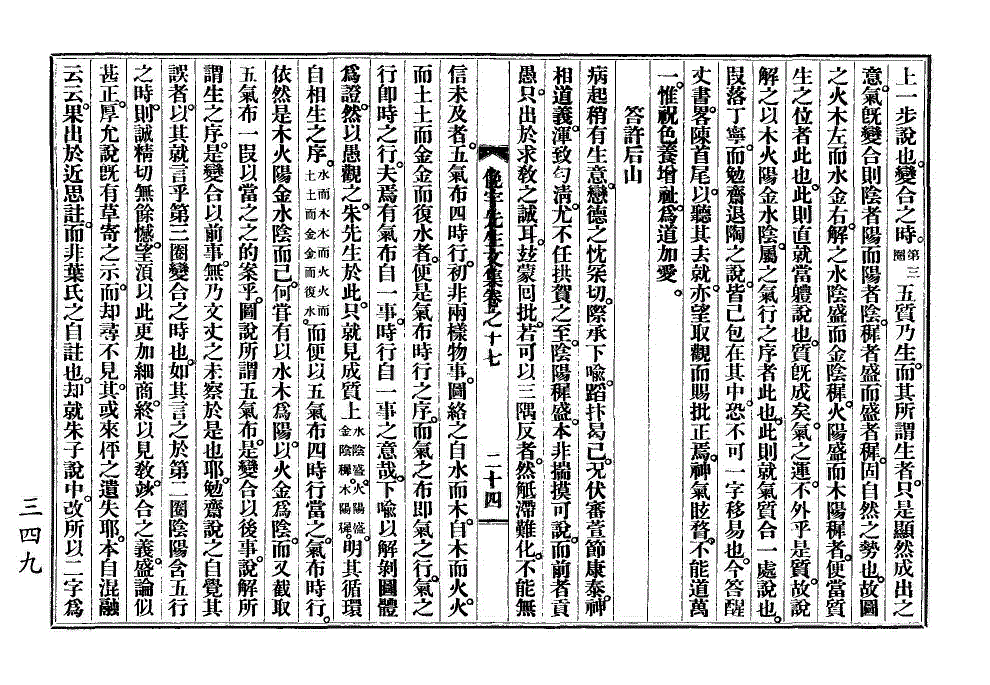 上一步說也。變合之時。第三圈五質乃生。而其所謂生者。只是顯然成出之
意。氣旣變合則陰者陽而陽者陰。穉者盛而盛者穉。固自然之勢也。故圖
之火木左而水金右。解之水陰盛而金陰穉。火陽盛而木陽穉者。便當質
生之位者此也。此則直就當軆說也。質旣成矣。氣之運。不外乎是質。故說
解之以木火陽金水陰。屬之氣行之序者此也。此則就氣質合一處說也。
段落丁寧。而勉齋退陶之說。皆已包在其中。恐不可一字移易也。今答醒
丈書。畧陳首尾。以聽其去就。亦望取觀而賜批正焉。神氣眩瞀。不能道萬
一。惟祝色養增祉。爲道加愛。
答許后山
病起稍有生意。戀德之忱采切。際承下喩。蹈抃曷已。況伏審萱節康泰。神
相道義。渾致勻淸。尤不任拱賀之至。陰陽穉盛。本非揣摸可說。而前者貢
愚。只出於求敎之誠耳。玆蒙回批。若可以三隅反者。然觝滯難化。不能無
先生文集卷之十七 二十四
信未及者。五氣布四時行。初非兩樣物事。圖絡之自水而木。自木而火。火
而土。土而金。金而復水者。便是氣布時行之序。而氣之布卽氣之行。氣之
行卽時之行。夫焉有氣布自一事。時行自一事之意哉。下喩以解剝圖體
爲證。然以愚觀之。朱先生於此。只就見成質上水陰盛。火陽盛。金陰穉。木陽穉。明其循環
自相生之序。水而木木而火火而土土而金金而復水。而便以五氣布四時行當之。氣布時行。
依然是木火陽金水陰而已。何嘗有以水木爲陽。以火金爲陰。而又截取
五氣布一段以當之之的案乎。圖說所謂五氣布。是變合以後事。說解所
謂生之序。是變合以前事。無乃文丈之未察於是也耶。勉齋說之自覺其
誤者。以其就言乎第三圈變合之時也。如其言之於第二圈陰陽含五行
之時。則誠精切無餘憾。望須以此更加細商。終以見敎。竗合之義。盛論似
甚正。厚允說旣有草寄之示。而却尋不見。其或來伻之遺失耶。本自混融
云云。果出於近思註。而非葉氏之自註也。却就朱子說中。改所以二字爲
三四九